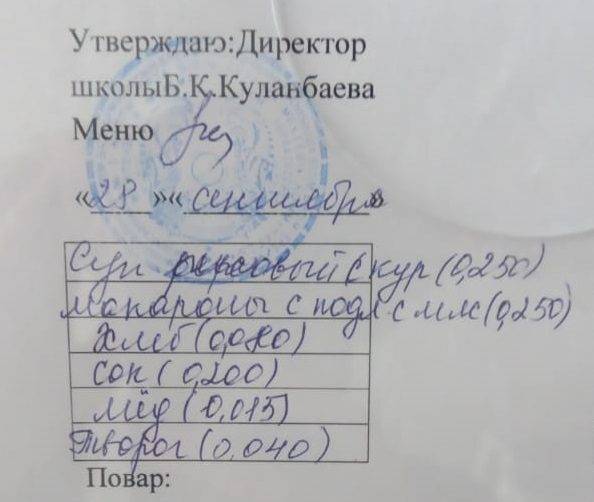 Утверждаю:Директор
школыБ.К.Куланбаева
Меню
«28»«сентября»
Суп рисовый с кур (0,250)
макароны с подл с мяс (0,250)
Хлеб (0,080)
Сок (0,200)
мёд (0,015)
Творог (0.040)
Повар: